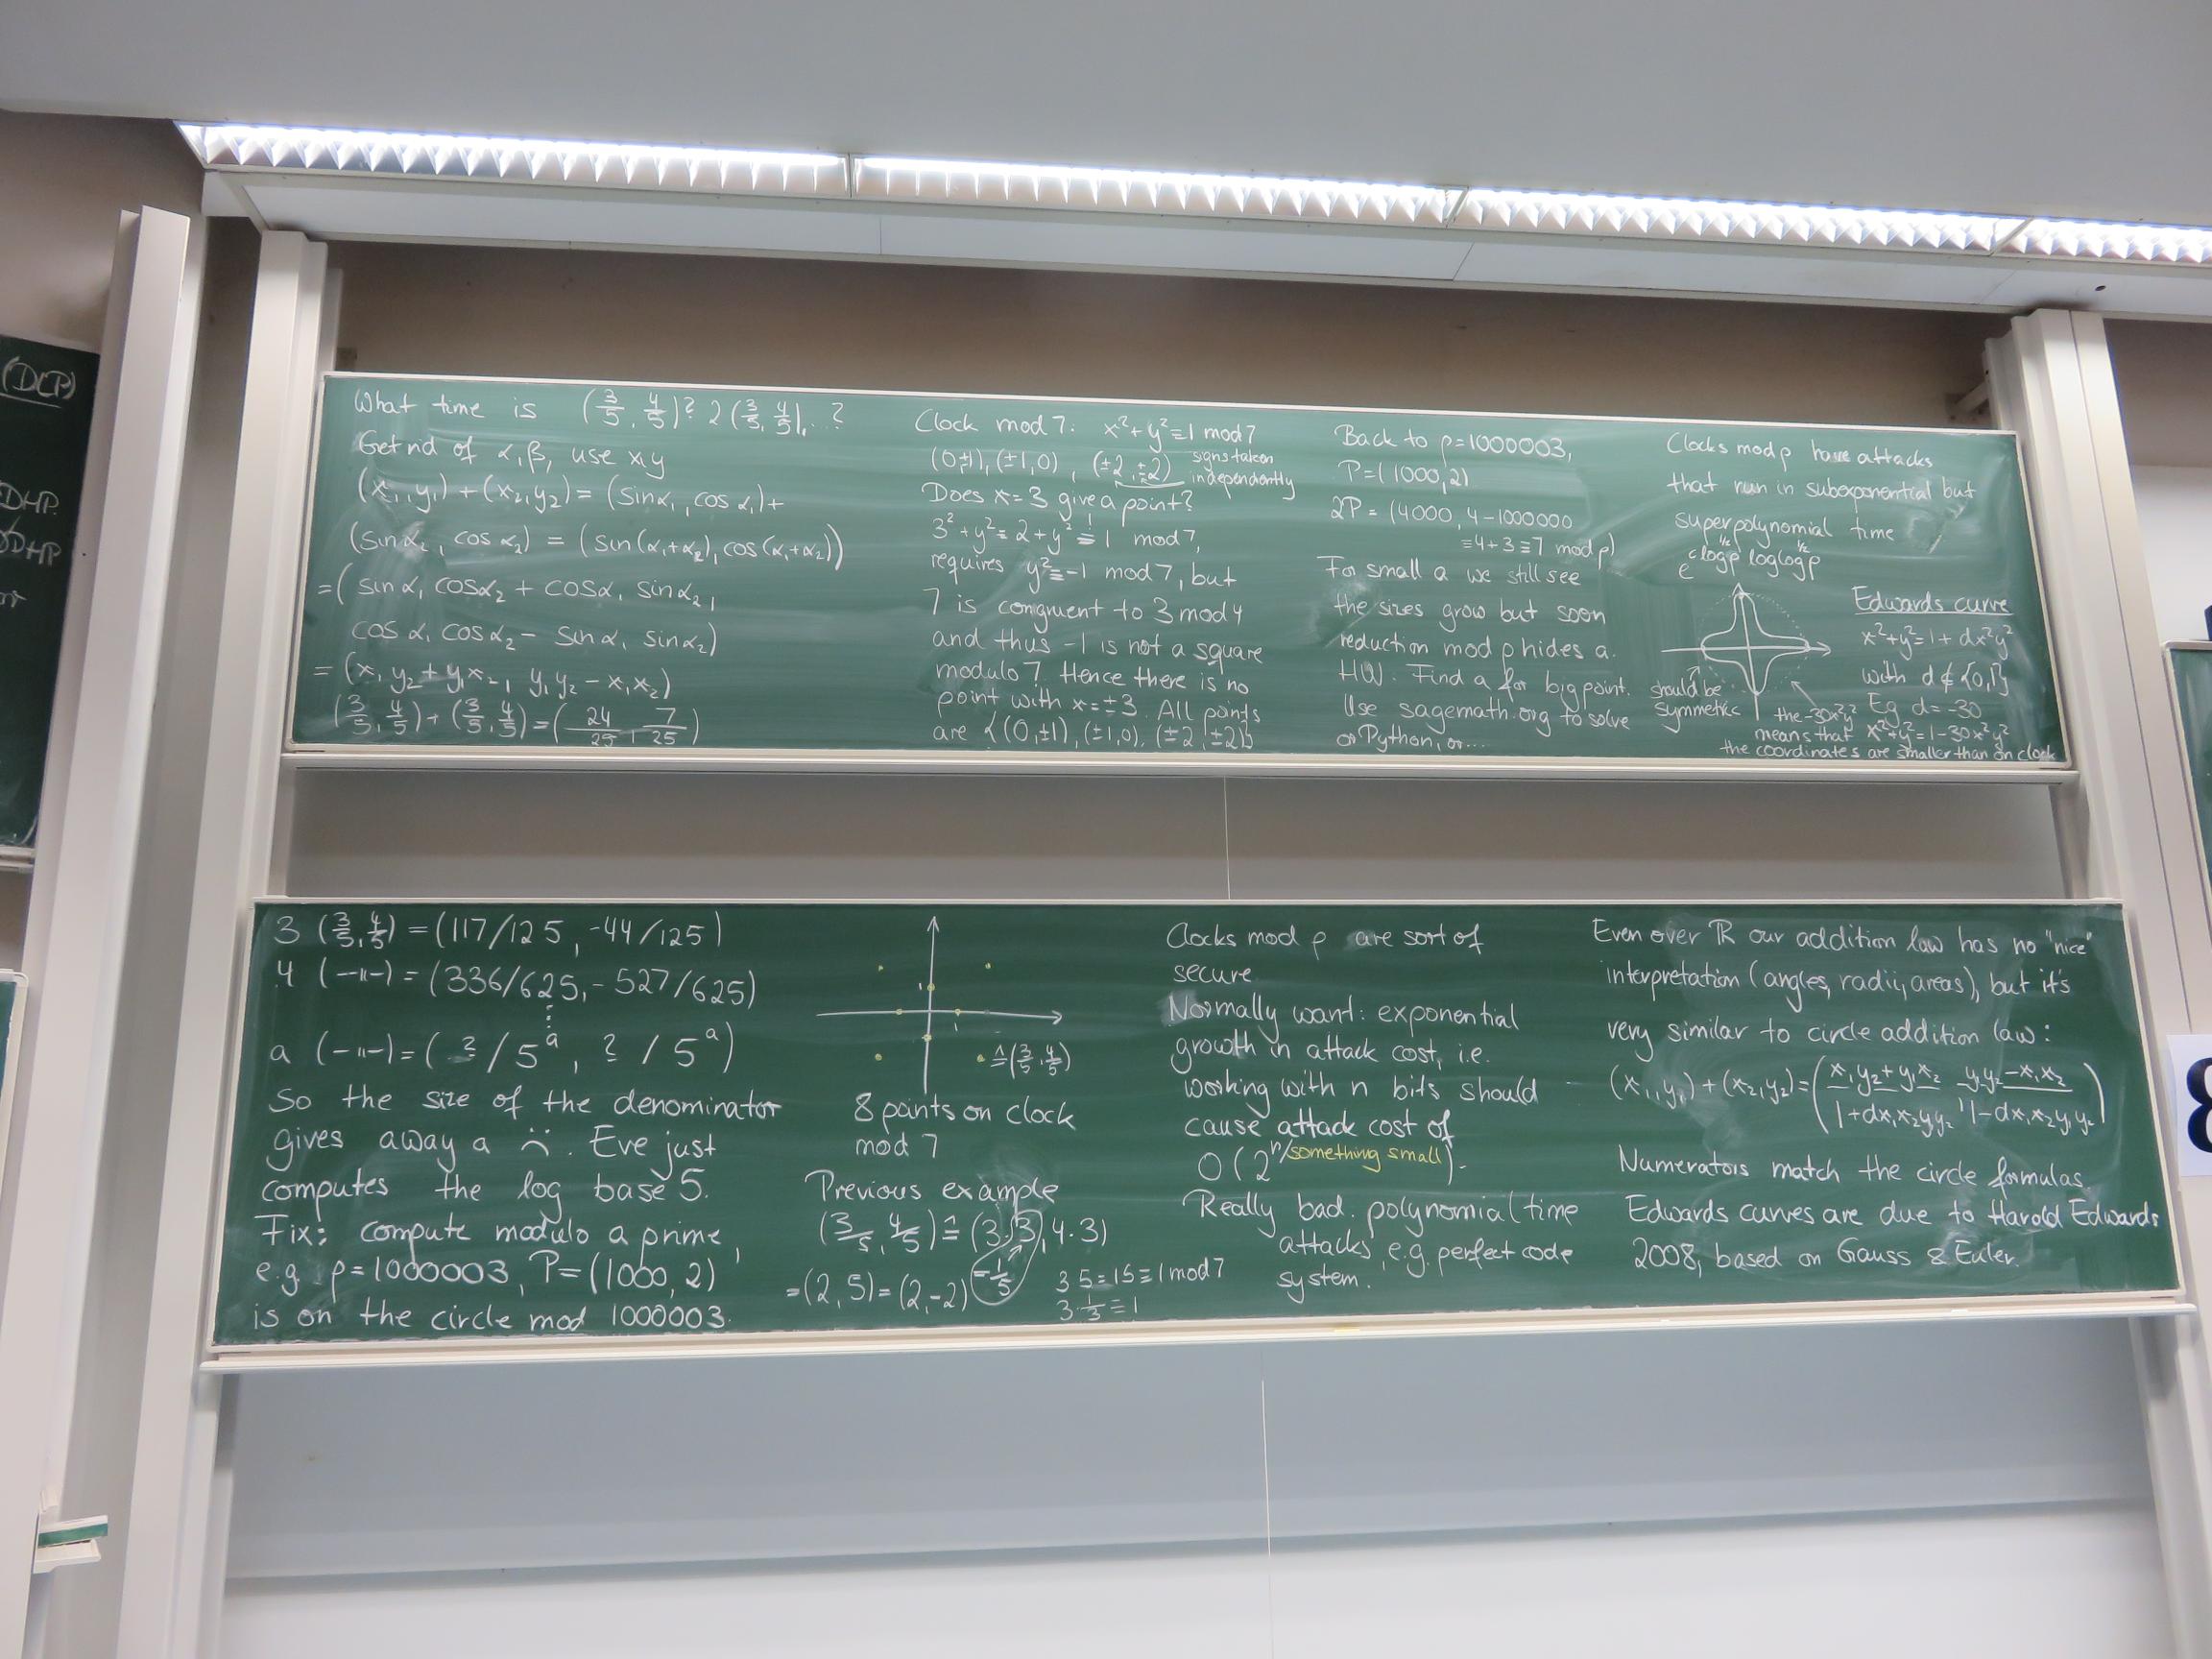 (DCP)
DHP
DDHP
What time is (3/5, 4/5)? 2(3/5, 4/5), ..?
Get rid of α, β, use x,y
(x₁, y₁) + (x₂, y₂) = (sin α₁, cos α₁) +
(sin α₂, cos α₂) = (sin(α₁+α₂), cos(α₁+α₂))
= (sin α₁ cos α₂ + cos α₁ sin α₂,
cos α₁ cos α₂ − sin α₁ sin α₂)
= (x₁y₂ + y₁x₂, y₁y₂ − x₁x₂)
(3/5, 4/5) + (3/5, 4/5) = (24/25, 7/25)
Clock mod 7: x² + y² ≡ 1 mod 7
(0,±1), (±1,0), (±2, ±2) signs taken
independently
Does x=3 give a point?
3² + y² ≡ 2 + y² ≡! 1 mod 7,
requires y² ≡ −1 mod 7, but
7 is congruent to 3 mod 4
and thus −1 is not a square
modulo 7. Hence there is no
point with x=±3. All points
are {(0,±1), (±1,0), (±2,±2)}
Back to p=1000003,
P=(1000,2)
2P = (4000, 4−1000000
≡4+3≡7 mod p)
For small a we still see
the sizes grow but soon
reduction mod p hides a.
HW. Find a for big point.
Use sagemath.org to solve
or Python, or....
Clocks mod p have attacks
that run in subexponential but
superpolynomial time
e^(c log p^(1/2) log log p^(1/2))
should be
symmetric
the -30x²y²
means that
the coordinates are smaller than on clock
Edwards curve
x²+y²=1+dx²y²
with d ∉ {0,1}
Eg d=−30
x²+y²=1−30x²y²
3 (3/5, 4/5) = (117/125, −44/125)
4 (—"—) = (336/625, −527/625)
⋮
a (—"—) = (?/5^a, ?/5^a)
So the size of the denominator
gives away a :(. Eve just
computes the log base 5.
Fix: compute modulo a prime,
e.g. p=1000003, P=(1000,2)
is on the circle mod 1000003.
1
1
≙(3/5, 4/5)
8 points on clock
mod 7
Previous example
(3/5, 4/5) ≙ (3·3, 4·3)
=(2,5)=(2,−2)
=1/5
3·5=15≡1 mod 7
3·1/3≡1
Clocks mod p are sort of
secure.
Normally want: exponential
growth in attack cost, i.e.
working with n bits should
cause attack cost of
O(2^(n/something small)).
Really bad: polynomial time
attacks, e.g. perfect code
system.
Even over ℝ our addition law has no "nice"
interpretation (angles, radii, areas), but it's
very similar to circle addition law:
(x₁,y₁) + (x₂,y₂) = ((x₁y₂+y₁x₂)/(1+dx₁x₂y₁y₂), (y₁y₂−x₁x₂)/(1−dx₁x₂y₁y₂))
Numerators match the circle formulas.
Edwards curves are due to Harold Edwards
2008, based on Gauss & Euler.
8